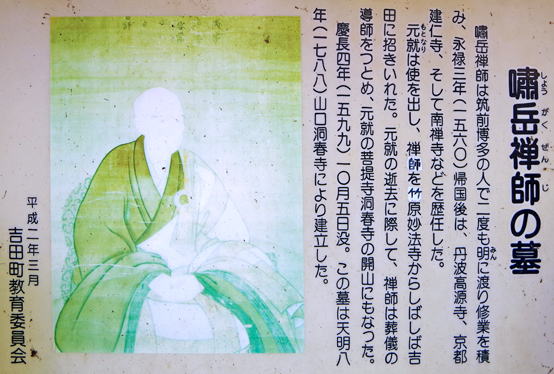 嘯岳禅師の墓
しょうがくぜんじ
嘯岳禅師は筑前博多の人で二度も明に渡り修業を積
みん
み、永禄三年(一五六〇)帰国後は、丹波高源寺、京都
建仁寺、そして南禅寺などを歴任した。
元就は使を出し、禅師を竹原妙法寺からしばしば吉
もとなり
田に招きいれた。元就の逝去に際して、禅師は葬儀の
導師をつとめ、元就の菩提寺洞春寺の開山にもなった。
慶長四年(一五九九)一〇月五日没。この墓は天明八
年(一七八八)山口洞春寺により建立した。
平成二年三月
吉田町教育委員会